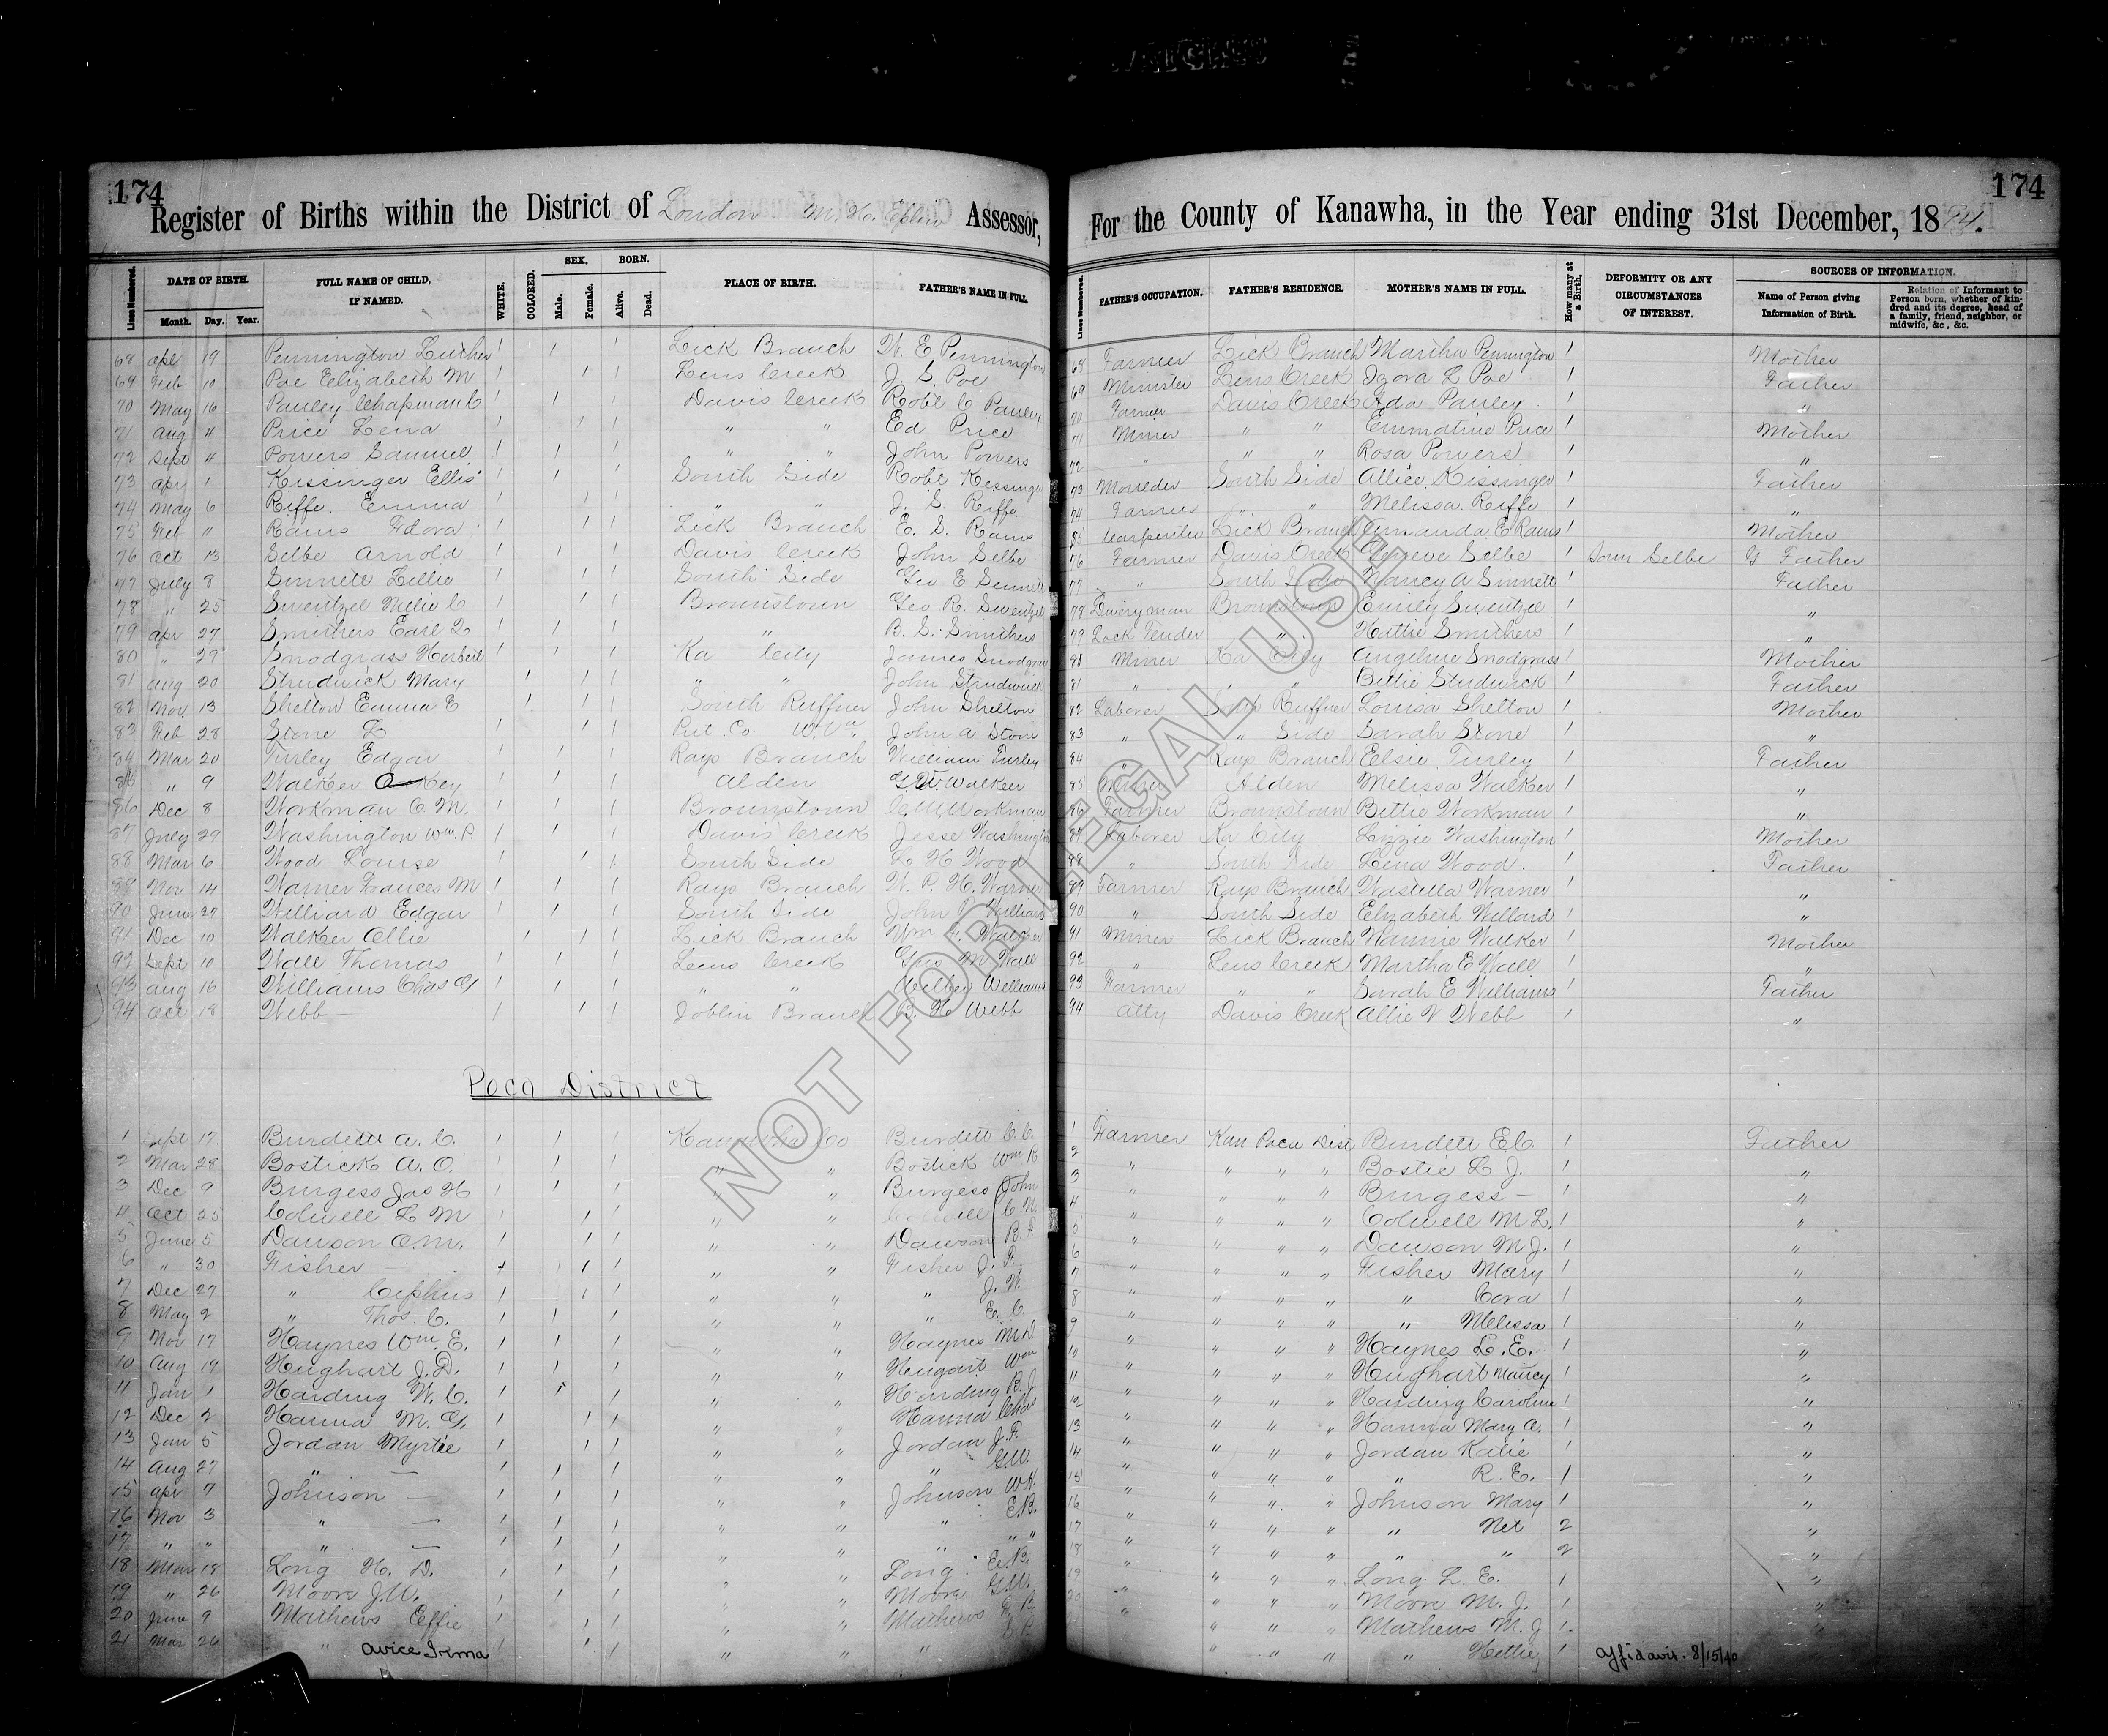 174
Register of Births within the District of London M. H. Assessor,
Lines Numbered. DATE OF BIRTH. FULL NAME OF CHILD, IF NAMED. WHITE. COLORED. SEX. BORN. PLACE OF BIRTH. FATHER'S NAME IN FULL
Month. Day. Year. Male. Female. Alive. Dead.
68 Apl 19 Pennington Luther 1 1 1 Lick Branch W. E Pennington
69 Feb 10 Poe Elizabeth M 1 1 1 Lens Creek J. S. Poe
70 May 16 Pauley Chapman C 1 1 1 Davis Creek Robt C Pauley
71 Aug 4 Price Lena 1 1 1 " " Ed Price
72 Sept 4 Powers Samuel 1 1 1 " " John Powers
73 Apr 1 Kissinger Ellis 1 1 1 South Side Robt Kessinger
74 May 6 Riffe Emma 1 1 1 " " J. S Riffe
75 Feb " Rams Idora 1 1 1 Lick Branch E. S. Rams
76 Oct 13 Selbe Arnold 1 1 1 Davis Creek John Selbe
77 July 8 Sinnett Lillie 1 1 1 South Side Geo E Sennett
78 " 25 Swentzel Nelie C 1 1 1 Brownstown Geo R. Swentzel
79 Apr 27 Smithers Earl L 1 1 1 " B. S. Smithers
80 " 29 Snodgrass Herbert 1 1 1 Ka City James Snodgrass
81 Aug 20 Strudwick Mary 1 1 1 " " John Strudwick
82 Nov 13 Shelton Emma E 1 1 1 South Ruffner John Shelton
83 Feb 28 Stone L 1 1 1 Put. Co. W. Va John A Stone
84 Mar 20 Turley Edgar 1 1 1 Rays Branch William Turley
85 " 9 Walker Key 1 1 1 Alden G. W. Walker
86 Dec 8 Workman C. M. 1 1 1 Brownstown C. M. Workman
87 July 29 Washington Wm. P. 1 1 1 Davis Creek Jesse Washington
88 Mar 6 Wood Louise 1 1 1 South Side L H Wood
89 Nov 14 Warner Frances M 1 1 1 Rays Branch W. P. H. Warner
90 June 27 Williard Edgar 1 1 1 South Side John Williard
91 Dec 10 Walker Ollie 1 1 1 Lick Branch Wm Walker
92 Sept 10 Wall Thomas 1 1 1 Lens Creek M Wall
93 Aug 16 Williams Chas 1 1 1 " " Williams
94 Oct 18 Webb — 1 1 1 Joblin Branch B. H Webb
Poca District
1 Sept 17 Burdett A. C. 1 1 1 Kanawha Co Burdett C. C.
2 Mar 28 Bostick A. O. 1 1 1 " " Bostick Wm
3 Dec 9 Burgess Jas H 1 1 1 " " Burgess John
4 Oct 25 Colwell L M 1 1 1 " " Colwell C. M
5 June 5 Dawson O. M. 1 1 1 " " Dawson B. F.
6 " 30 Fisher — 1 1 1 " " Fisher J. P.
7 Dec 27 " Cephus 1 1 1 " " " J. W.
8 May 2 " Thos. C. 1 1 1 " " " C.
9 Nov 17 Haynes Wm. E. 1 1 1 " " Haynes
10 Aug 19 Hughart J. D. 1 1 1 " " Hugart Wm
11 Jan 1 Harding W. C. 1 1 1 " " Harding B. J
12 Dec 2 Hanna M. G. 1 1 1 " " Hanna Chas
13 Jan 5 Jordan Myrtie 1 1 1 " " Jordan J. F.
14 Aug 27 " — 1 1 1 " " " G. W.
15 Apr 7 Johnson — 1 1 1 " " Johnson W. H.
16 Nov 3 " — 1 1 1 " " " E. B.
17 " " " — 1 1 1 " " " " "
18 Mar 18 Long H. D. 1 1 1 " " Long E. B.
19 " 26 Moore J. W. 1 1 1 " " Moore G. W.
20 June 9 Mathews Effie 1 1 1 " " Mathews
21 Mar 26 " Avice Irma 1 1 1 " " "
174
For the County of Kanawha, in the Year ending 31st December, 18
Lines Numbered. FATHER'S OCCUPATION. FATHER'S RESIDENCE. MOTHER'S NAME IN FULL. How many at a Birth. DEFORMITY OR ANY CIRCUMSTANCES OF INTEREST. SOURCES OF INFORMATION.
Name of Person giving Information of Birth. Relation of Informant to Person born, whether of kindred and its degree, head of a family, friend, neighbor, or midwife, &c., &c.
68 Farmer Lick Branch Martha Pennington 1 Mother
69 Minister Lens Creek Izora L Poe 1 Father
70 Farmer Davis Creek Ada Pauley 1 "
71 Miner " " Emmatine Price 1 Mother
72 " " " Rosa Powers 1 "
73 Moulder South Side Allice Kissinger 1 Father
74 Farmer " " Melissa Riffe 1 "
75 Carpenter Lick Branch Amanda E Rams 1 Mother
76 Farmer Davis Creek Selbe 1 John Selbe G Father
77 " South Side Nancy A Sinnett 1 Father
78 Liveryman Brownstown Emily Swentzel 1 "
79 Lock Tender " Hattie Smithers 1 "
80 Miner Ka City Angeline Snodgrass 1 Mother
81 " " " Bettie Studwick 1 Father
82 Laborer South Ruffner Louisa Shelton 1 Mother
83 " " Side Sarah Stone 1 "
84 " Rays Branch Elsie Turley 1 Father
85 Miner Alden Melissa Walker 1 "
86 Farmer Brownstown Bettie Workman 1 "
87 Laborer Ka City Lizzie Washington 1 Mother
88 " South Side Lena Wood 1 Father
89 Farmer Rays Branch Wastella Warner 1 "
90 " South Side Elizabeth Willard 1 "
91 Miner Lick Branch Nannie Walker 1 Mother
92 " Lens Creek Martha E Wall 1 "
93 Farmer " " Sarah E Williams 1 Father
94 Atty Davis Creek Allie V Webb 1 "
1 Farmer Kan Poca Dist Burdett E. C. 1 Father
2 " " " " Bostic L J. 1 "
3 " " " " Burgess — 1 "
4 " " " " Colwell M L. 1 "
5 " " " " Dawson M. J. 1 "
6 " " " " Fisher Mary 1 "
7 " " " " " Cora 1 "
8 " " " " " Melissa 1 "
9 " " " " Haynes L. E. 1 "
10 " " " " Hughart Nancy 1 "
11 " " " " Harding Caroline 1 "
12 " " " " Hanna Mary A. 1 "
13 " " " " Jordan Katie 1 "
14 " " " " " R. E. 1 "
15 " " " " Johnson Mary 1 "
16 " " " " " Net 2 "
17 " " " " " " 2 "
18 " " " " Long L. E. 1 "
19 " " " " Moore M. J. 1 "
20 " " " " Mathews M. J 1 "
" " " " Hettie 1 Affidavit. 8/15/40
NOT FOR LEGAL USE